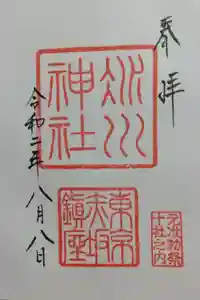 奉拝
氷川
神社
令和二年八月八日
東京
赤坂
鎮座
元准勅祭
十社之内